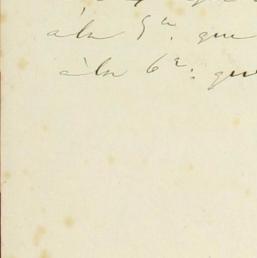 à la 5ª. que
à la 6ª: que